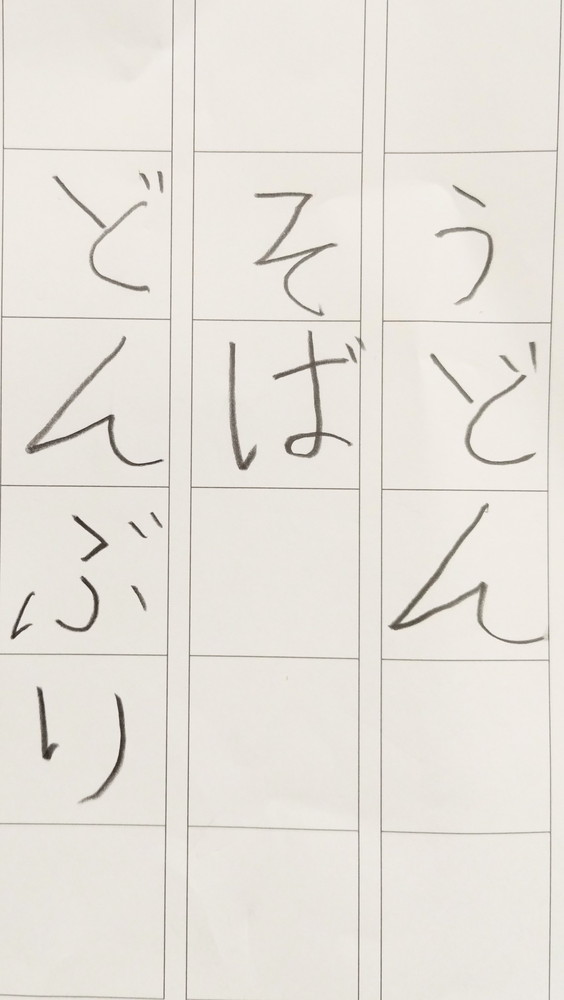 うどん
そば
どんぶり